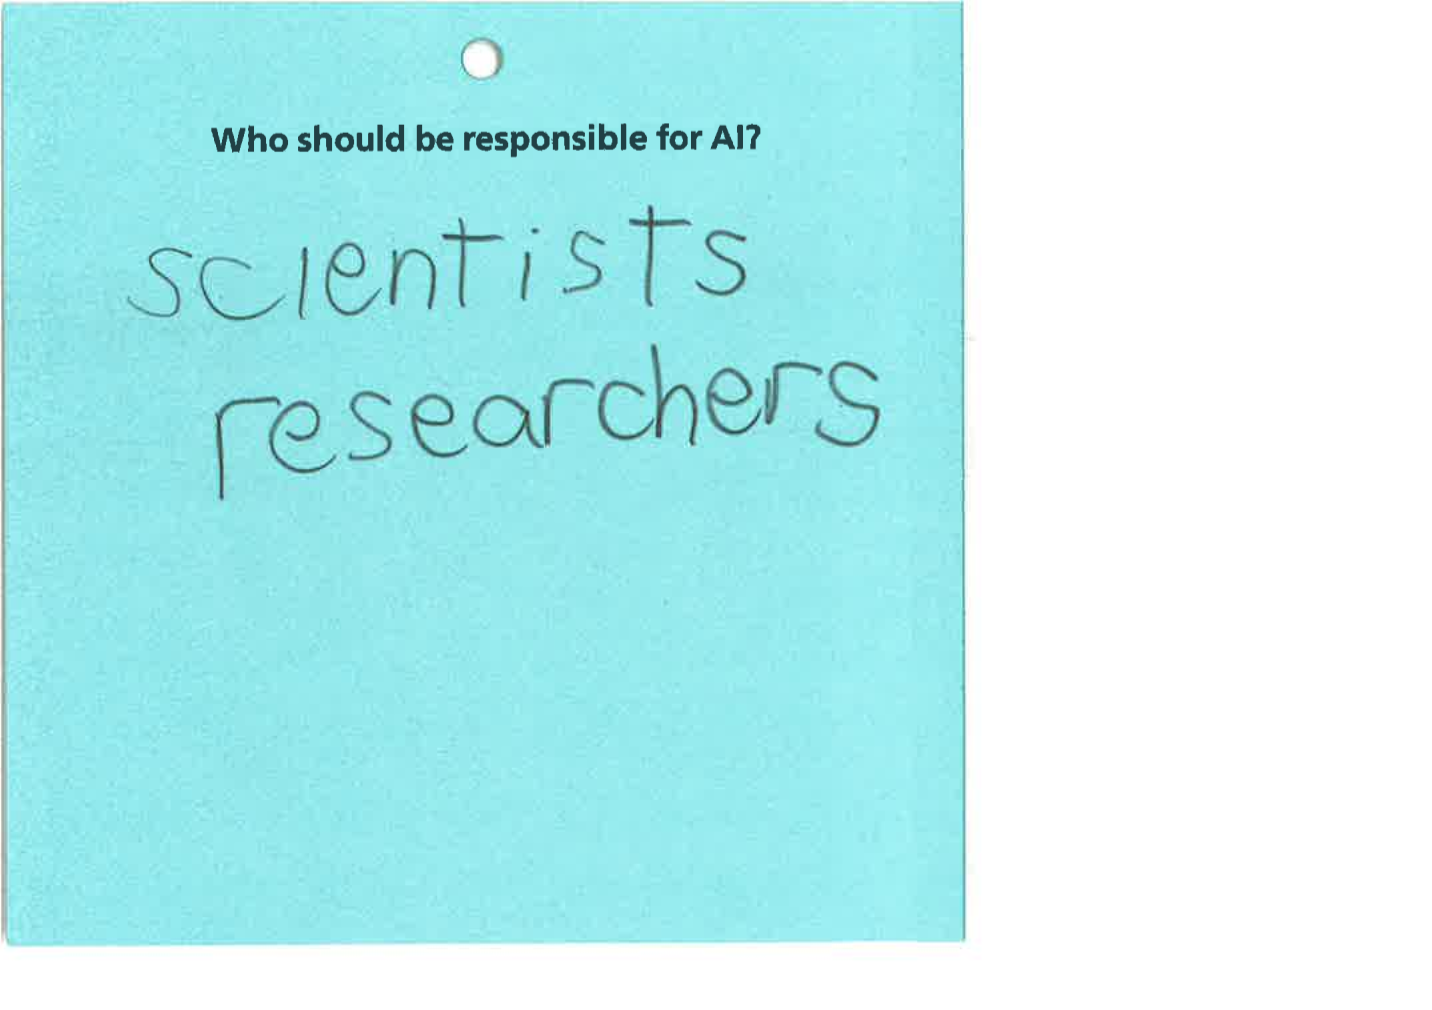 Who should be responsible for AI?
scientists
researchers